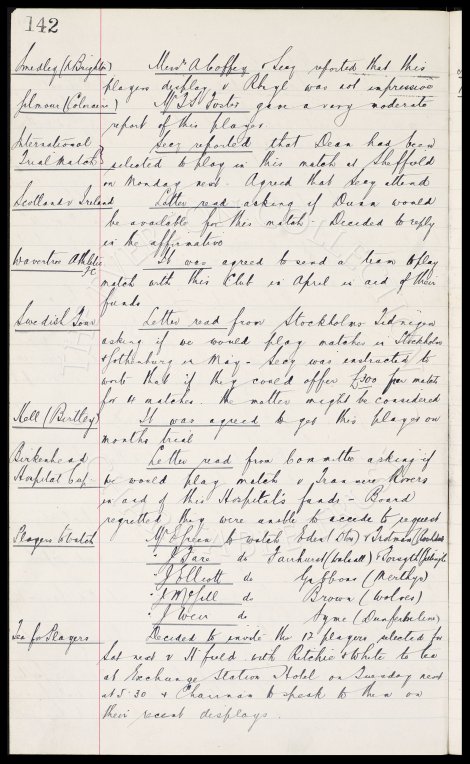 142
Smedley (N Brighton) Messrs A Coffey & Secy reported that this
players display v Rhyl was not impressive
Gilmour (Coleraine) Mr T S Foster gave a very moderate
report of this player.
International Secy reported that Dean had been
Trial Match selected to play in this match at Sheffield
on Monday next. Agreed that Secy attend
Scotland v Ireland Letter read asking if Dunn would
be available for this match - Decided to reply
in the affirmative
Wavertree Athletic It was agreed to send a team to play
FC
match with this Club in April in aid of their
funds.
Swedish Tour Letter read from Stockholms Tidningen
asking if we would play matches in Stockholm
& Gothenburg in May - Secy was instructed to
write that if they could offer £300 per match
for 4 matches. the matter might be considered
Mell (Birtley) It was agreed to get this player on
months trial
Birkenhead Letter read from Committee asking if
Hospital Cup - we would play match v Tranmere Rovers
in aid of this Hospital's funds - Board
regretted they were unable to accede to request
Players to Watch Mr E Green to watch &
" J Fare do Fairhurst (Walsall) &
" J Elliott do Gibbons (Merthyr)
" J McGill do Brown (Wolves)
" J Weir do Syme (Dunfermline)
Tea for Players Decided to invite the 12 players selected for
Sat next v H'field with Ritchie & White to tea
at Exchange Station Hotel on Tuesday next
at 5.30 & Chairman to speak to them on
their recent displays.